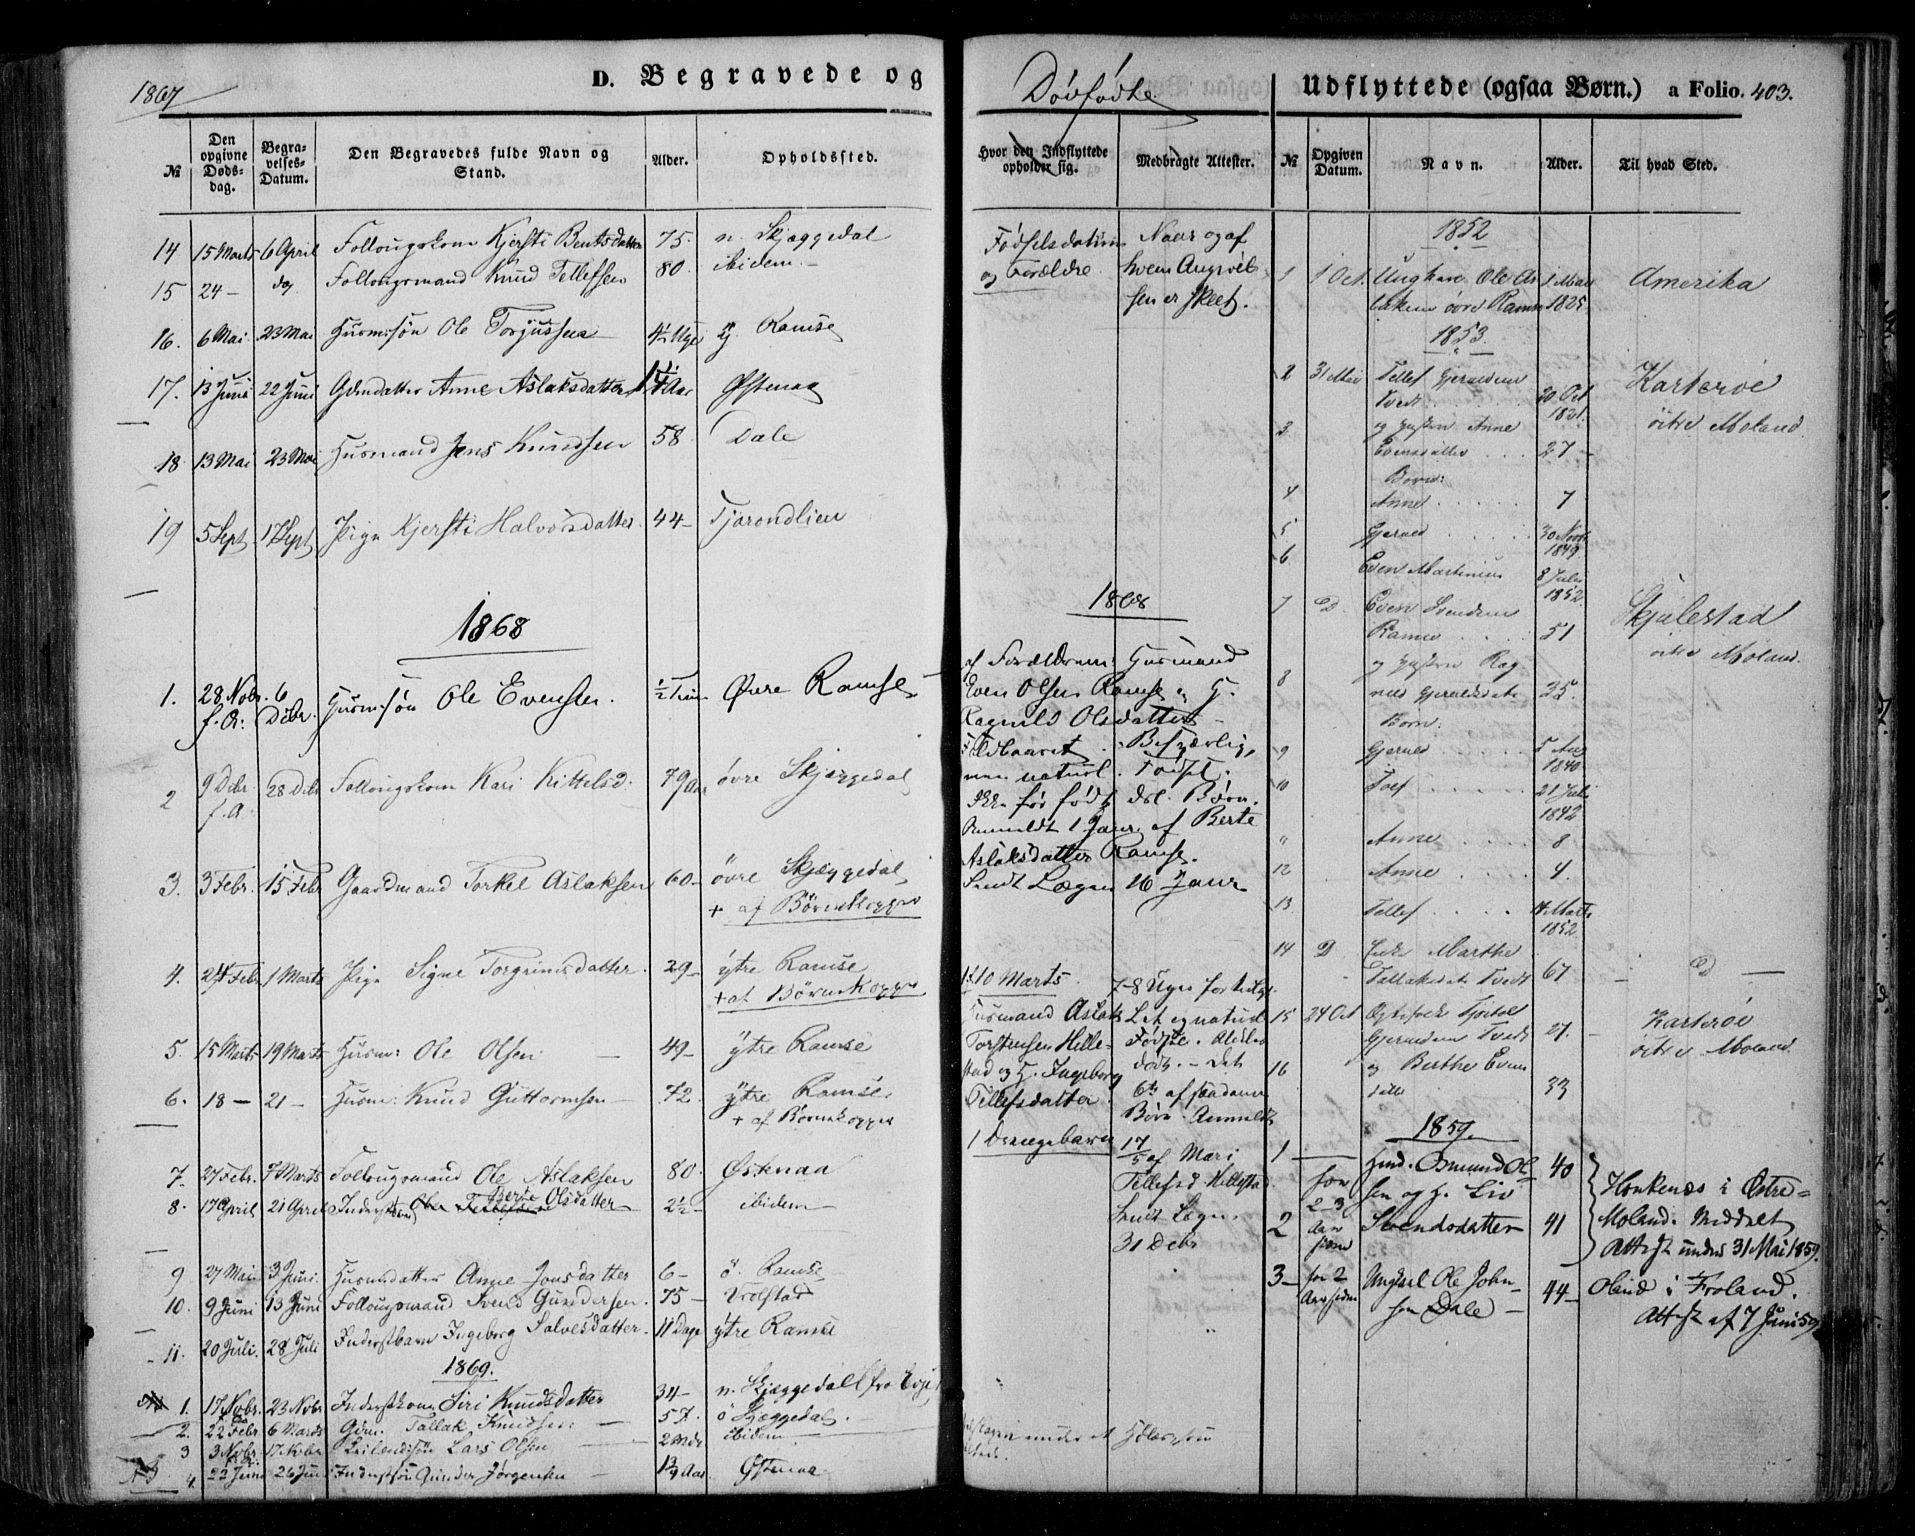 1867
D. Begravede og
№
Den opgivne Dødsdag.
Begravelses-Datum.
Den Begravedes fulde Navn og Stand.
Alder.
Opholdssted.
14 15 Marts 6 April Follougskone Kjersti Bentsdatter 75. n. Skjæggedal
15 24 — do Follougsmand Knud Tellefsen 80. ibidem —
16. 6 Mai 23 Mai Husmsøn Ole Torjussen Uger Ramse
17. 13 Juni 22 Juni Gdmdatter Anne Aslaksdatter Aar Østenaa
18 13 Mai 23 Mai Husmand Jens Knudsen 58. Dale
19 5 Sept 17 Sept Pige Kjersti Halvorsdatter 44— Tjorondlien
1868
1. 28 Nobr. f. A: 6 Debr. Husmsøn Ole Evensen. ½ Øvre Ramse
2 9 Debr. f. A. 28 Debr Follougskone Kari Kittelsd. 79 Aar øvre Skjæggedal
3. 3 Febr. 15 Febr Gaardmand Torkel Aslaksen 60— øvre Skjæggedal
+ af Børnekopper
4. 24 Febr. 1 Marts Pige Signe Torgrimsdatter. 29— ytre Ramse
+ af Børnekopper
5. 15 Marts 19 Marts Husm: Ole Olsen — 49— ytre Ramse
6. 18 — 21 — Husm: Knud Guttormsen — 72. ytre Ramse.
+ af Børnekopper
7. 27 Febr. 7 Marts Follougsmand Ole Aslaksen 80. Østenaa
8. 17 April 21 April Inderstbarn Berte Olsdatter 2½— ibidem—
9 27 Mai 3 Juni. Husmdatter Anne Jonsdatter 6— ö. Ramse
10. 9 Juni 13 Juni Follougsmand Svend Gundersen. 75— Vrolstad
11. 20 Juli. 28 Juli Inderstbarn Ingeborg Salvesdatter. 11 Dage ytre Ramse
1869.
1. 17 Nobr. 23 Nobr Inderstkone Siri Knudsdatter 34— n. Skjæggedal
2. 22 Febr 6 Marts Gdm. Tallak Knudsen 57. ö Skjæggedal.
3 3 Nobr 17 Nobr Lars Olsen — 2 Mdr ibidem
4. 22 Juni 26 Juni Inderstsøn Gunder Jørgensen — Aar Østenaa
Dødfødte
Hvor den Indflyttede opholder sig.
Medbragte Attester.
Fødselsdatum og Forældre.
Naar og af hvem Angivelsen er skeet.
1868
af Forældrene: Husmand
Even Olsen Ramse og H.
Ragnild Olsdatter —
Besværlig,
men naturl. Fødsel.
Ikke før født dsl. Børn.
Anmeldt 1 Janr af Berte
Aslaksdatter Ramse.
Sendt Lægen 16 Janr
10 Marts.
Husmand Aslak
Torstensen Hillestad og H. Ingeborg
Tellefsdatter.
1 Drengebarn
7-8 Uger for tidligt
Let og natural
Fødsel.
død. — Det
6te af saadanne
Børn. Anmeldt
17/5 af Mari
Tellefsd Hillestad
Sendt Lægen.
31 Debr
Udflyttede (ogsaa Børn.) a Folio. 403.
№
Opgiven Datum.
Navn.
Alder.
Til hvad Sted.
1852
1 1 Oct. Ungkarl Ole As
laksen øvre Ramse 1 Mai 1825 Amerika
1853.
2 31 Mai Tellef Gjeruldsen
Tvedt 20 Oct 1821. Karterøe
østre Moland.
3 og Hustru Anne
Evensdatter 27 —
Børn:
4 Anne 7
5 Gjeruld 30 Novb 1849.
6 Even Martinius 8 Juli 1852.
7 D. Even Svendsen
Ramse 51 Skjulestad
østre Moland.
8 og Hustru Rag
nild Gjeruldsdatr 35.
Børn:
9 Gjeruld 5 Aug 1840
10 Tolf 21 Juli 1842
" Anne 8
12 Anne 4.
13 Tellef 14 Marts 1852.
14 D Enke Marthe
Tallaksdatr Tvedt 67 — D —
15 24 Oct Tjøstel
Gjeruldsen Tvedt 27. Karterøe
østre Moland
16 og Berthe Evens
datter 33
1859.
1 — for 2-3 Aar siden Husd. Osmund Ol
sen og H. Liv 40
2 Svendsdatter 41
Honkenæs i Østre-
Moland. Meddelt
Attest under 31 Mai 1859.
3 — for 2 Aar siden Ungkarl Ole John-
sen Dale — 44— Olend i Froland.
Attest af 7 Juni 59